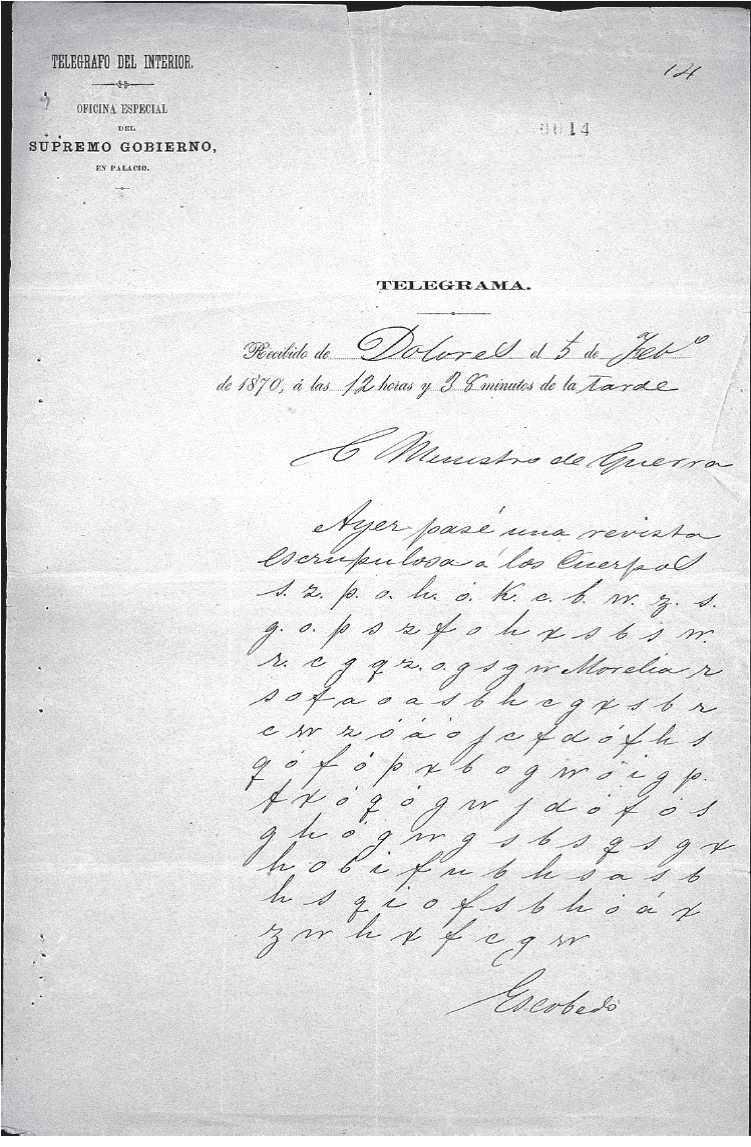 TELEGRAFO DEL INTERIOR.
OFICINA ESPECIAL
DEL
SUPREMO GOBIERNO,
EN PALACIO.
14
0014
TELEGRAMA.
Recibido de Dolores el 5 de Febo
de 1870, á las 12 horas y 38 minutos de la tarde
C Ministro de Guerra
Ayer pasé una revista
escrupulosa á los Cuerpos
s. z. p. o. h. ó. K. c. b. w. z. s.
g. o. p s z f o h x s b s w.
r. c g q z. o. g s g w Morelia r
s o f a o a s b h c g x s b z
c w z ó á o j c f d ó f h s
q ó f ó p x b o g w ó i g p.
f x ó q ó g w j d ó f ó s
g h ó g w g s b s q s g x
h o b i f u b h s a s b
h s q i o f s b h ó á x
z w h x f c g w
Escobedo